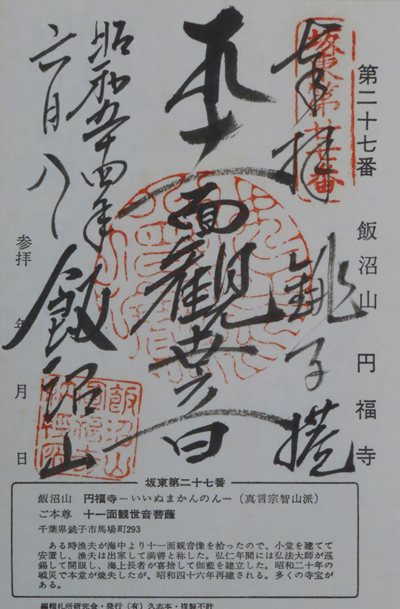 第二十七番 飯沼山 円福寺
坂東第廿七番
奉拝 銚子
十一面觀世音
飯沼山
昭和五十四年
六月八日
参拝 年 月 日
坂東第二十七番
飯沼山 円福寺―いいぬまかんのん―(真言宗智山派)
ご本尊 十一面観世音菩薩
千葉県銚子市馬場町293
ある時漁夫が海中より十一面観音像を拾ったので、小堂を建てて
安置し、漁夫は出家して満善と称した。弘仁年間には弘法大師が巡
錫して開眼し、海上長者が喜捨して伽藍を建立した。昭和二十年の
戦災で本堂が焼失したが、昭和四十六年再建される。多くの寺宝が
ある。
編輯札所研究会・発行(有)久志本・複製不許